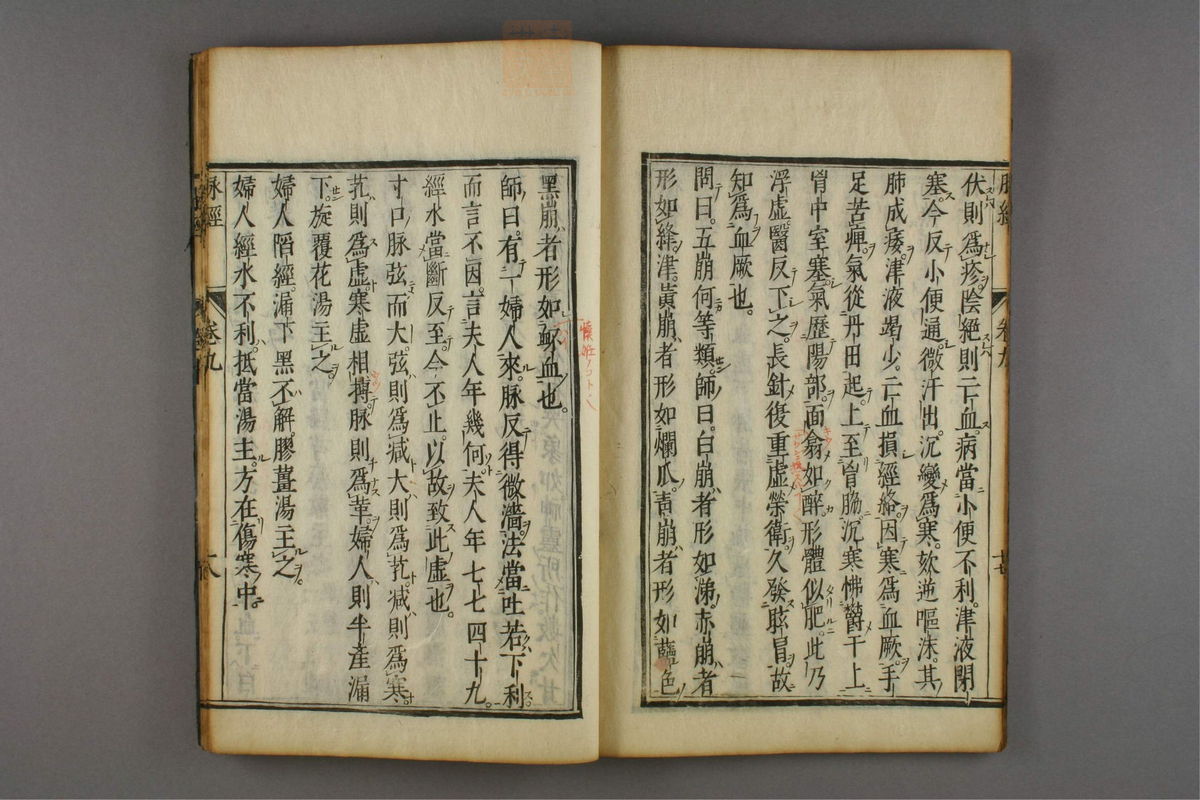 伏則爲疹陰絶則亡血病當小便不利津液閉
塞今反小便通微汗出沉變爲寒欬逆嘔沫其
肺成痿津液竭少亡血損經絡因寒爲血厥手
足苦痺氣從丹田起上至胷脇沉寒怫欝于上
胷中窒塞氣歷陽部面翕如醉形體似肥此乃
浮虛醫反下之長針復重虛榮衛久發眩冒故
知爲血厥也
問曰五崩何等類師曰白崩者形如涕赤崩者
形如絳津黄崩者形如爛瓜青崩者形如藍色
黑崩者形如衃血也
師曰有一婦人來脉反得微濇法當吐若下利
而言不因言夫人年幾何夫人年七七四十九
經水當斷反至今不止以故致此虛也
寸口脉弦而大弦則爲减大則爲芤减則爲寒
芤則爲虛寒虛相搏脉則爲革婦人則半產漏
下旋覆花湯主之
婦人䧟經漏下黑不解膠薑湯主之
婦人經水不利抵當湯主方在傷寒中
脉經
卷九